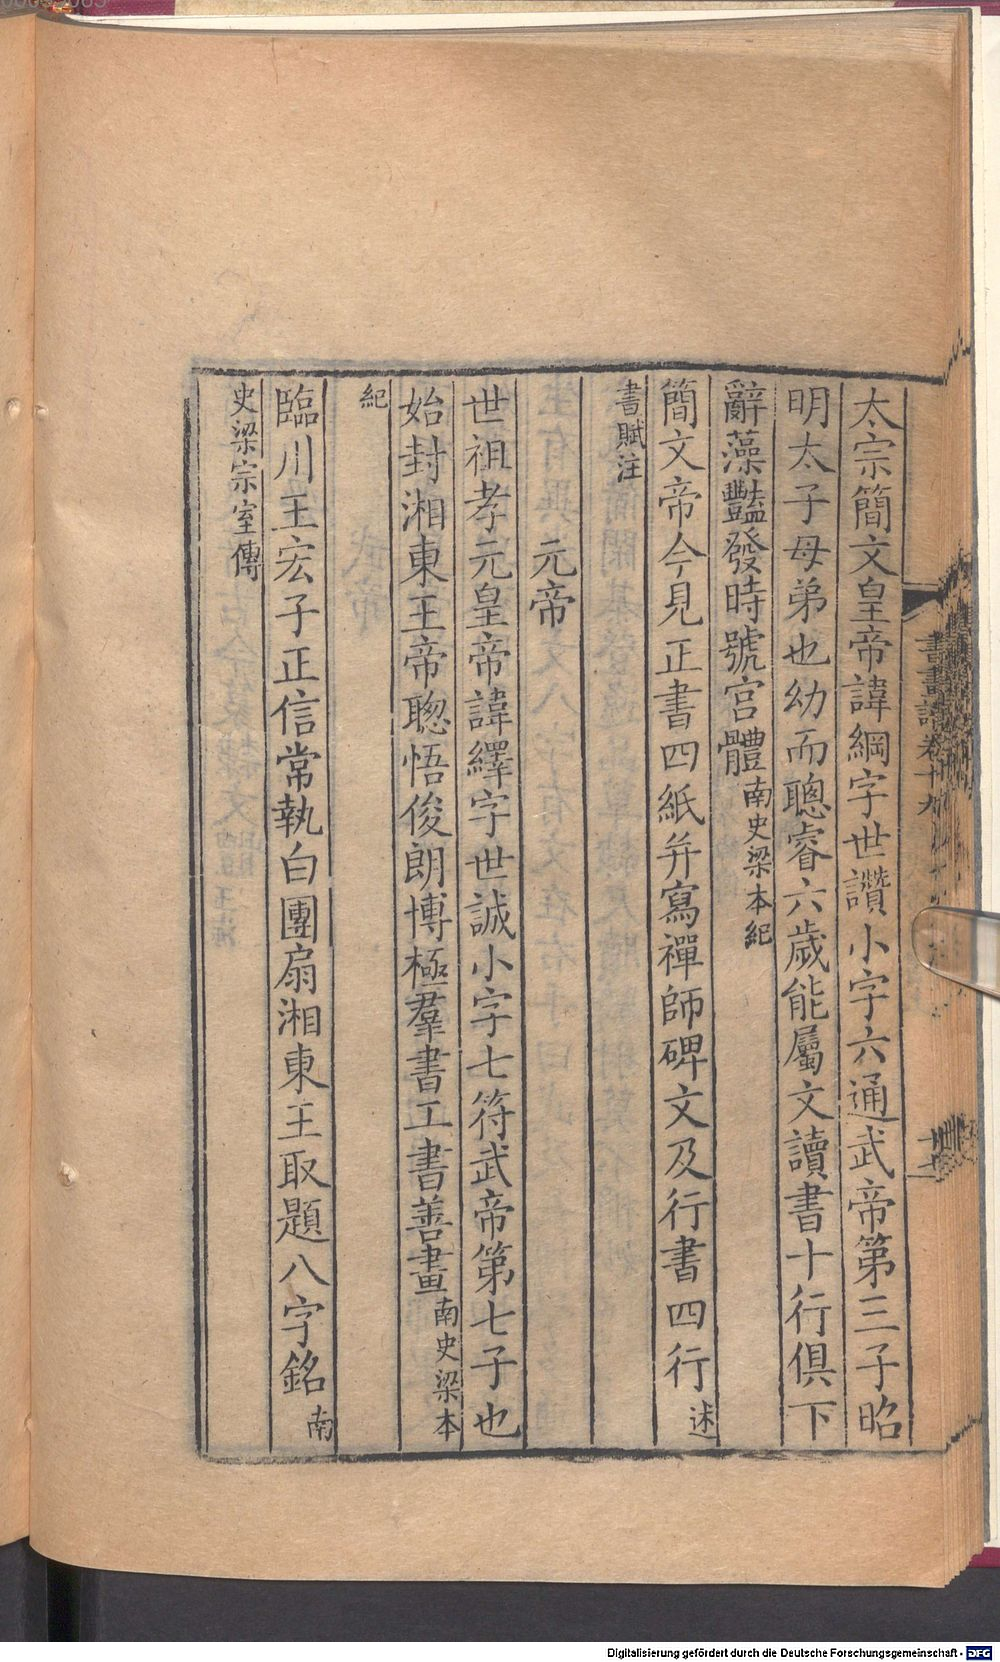 太宗簡文皇帝諱綱字世讚小字六通武帝第三子昭
明太子母弟也幼而聰睿六歲能屬文讀書十行俱下
辭藻豔發時號宮體南史梁本紀
簡文帝今見正書四紙并寫禪師碑文及行書四行述
書賦注
元帝
世祖孝元皇帝諱繹字世誠小字七符武帝第七子也
始封湘東王帝聰悟俊朗博極羣書工書善畫南史梁本
紀
臨川王宏子正信常執白團扇湘東王取題八字銘南
史梁宗室傳
書畫譜卷十九
Digitalisierung gefördert durch die Deutsche Forschungsgemeinschaft - DFG